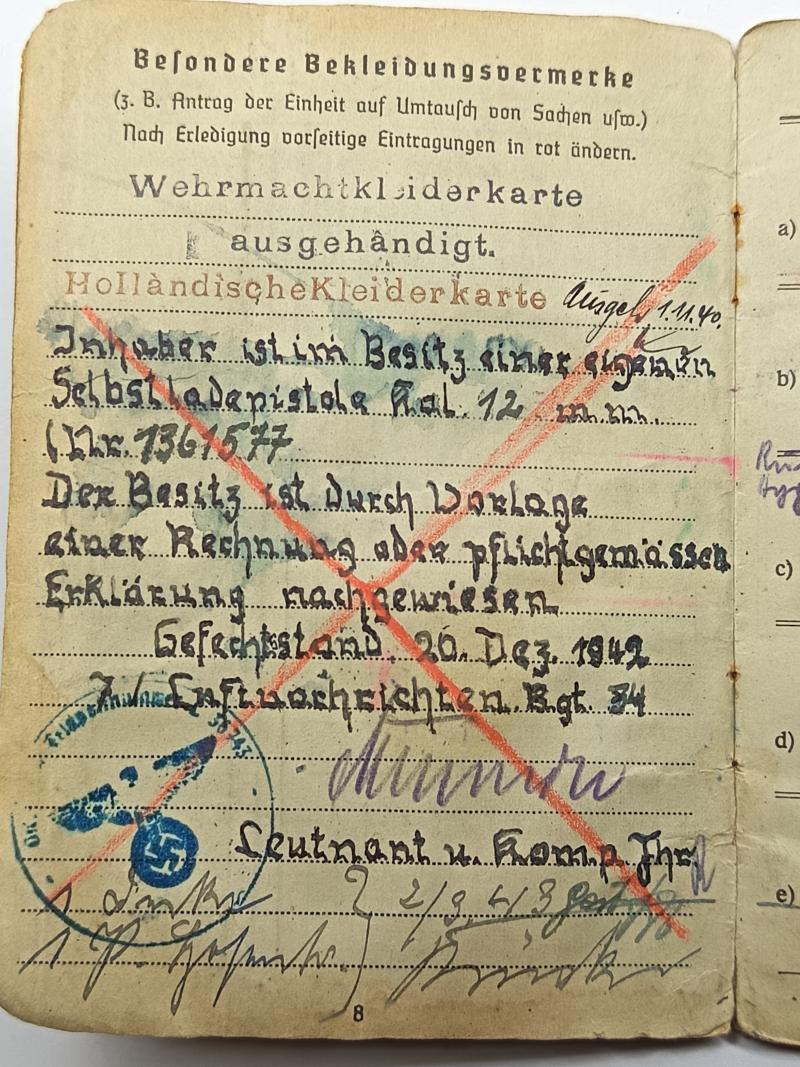 Besondere Bekleidungsvermerke
(z. B. Antrag der Einheit auf Umtausch von Sachen usw.)
Nach Erledigung vorseitige Eintragungen in rot ändern.
Wehrmachtkleiderkarte
ausgehändigt.
HolländischeKleiderkarte Ausgeh. 1.11.40.
Inhaber ist im Besitz einer eigenen
Selbstladepistole Kal. 12 m.m.
(Nr. 1361577
Der Besitz ist durch Vorlage
einer Rechnung oder pflichtgemässen
Erklärung nachgewiesen
Gefechtsstand, 20. Dez. 1942
7/ Luftnachrichten. Rgt. 34
Leutnant u. Komp.
1
1
8
a)
b)
c)
d)
e)